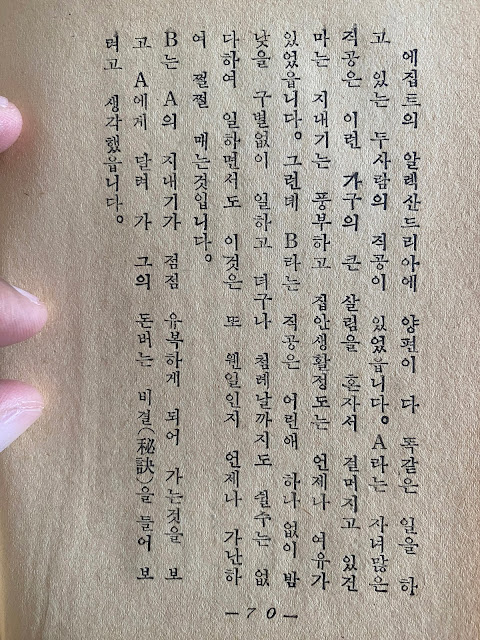 에집트의 알렉산드리아에 양편이 다 똑같은 일을 하
고 있는 두사람의 직공이 있었읍니다。A라는 자녀많은
직공은 이런 가구의 큰 살림을 혼자서 걸머지고 있건
마는 지내기는 풍부하고 집안생활정도는 언제나 여유가
있었읍니다。그런데 B라는 직공은 어린애 하나 없이 밤
낮을 구별없이 일하고 더구나 첨례날까지도 쉴수는 없
다하여 일하면서도 이것은 또 웬일인지 언제나 가난하
여 쩔쩔 매는것입니다。
B는 A의 지내기가 점점 유복하게 되어 가는것을 보
고 A에게 달려 가 그의 돈버는 비결(秘訣)을 들어 보
려고 생각했읍니다。
—70—